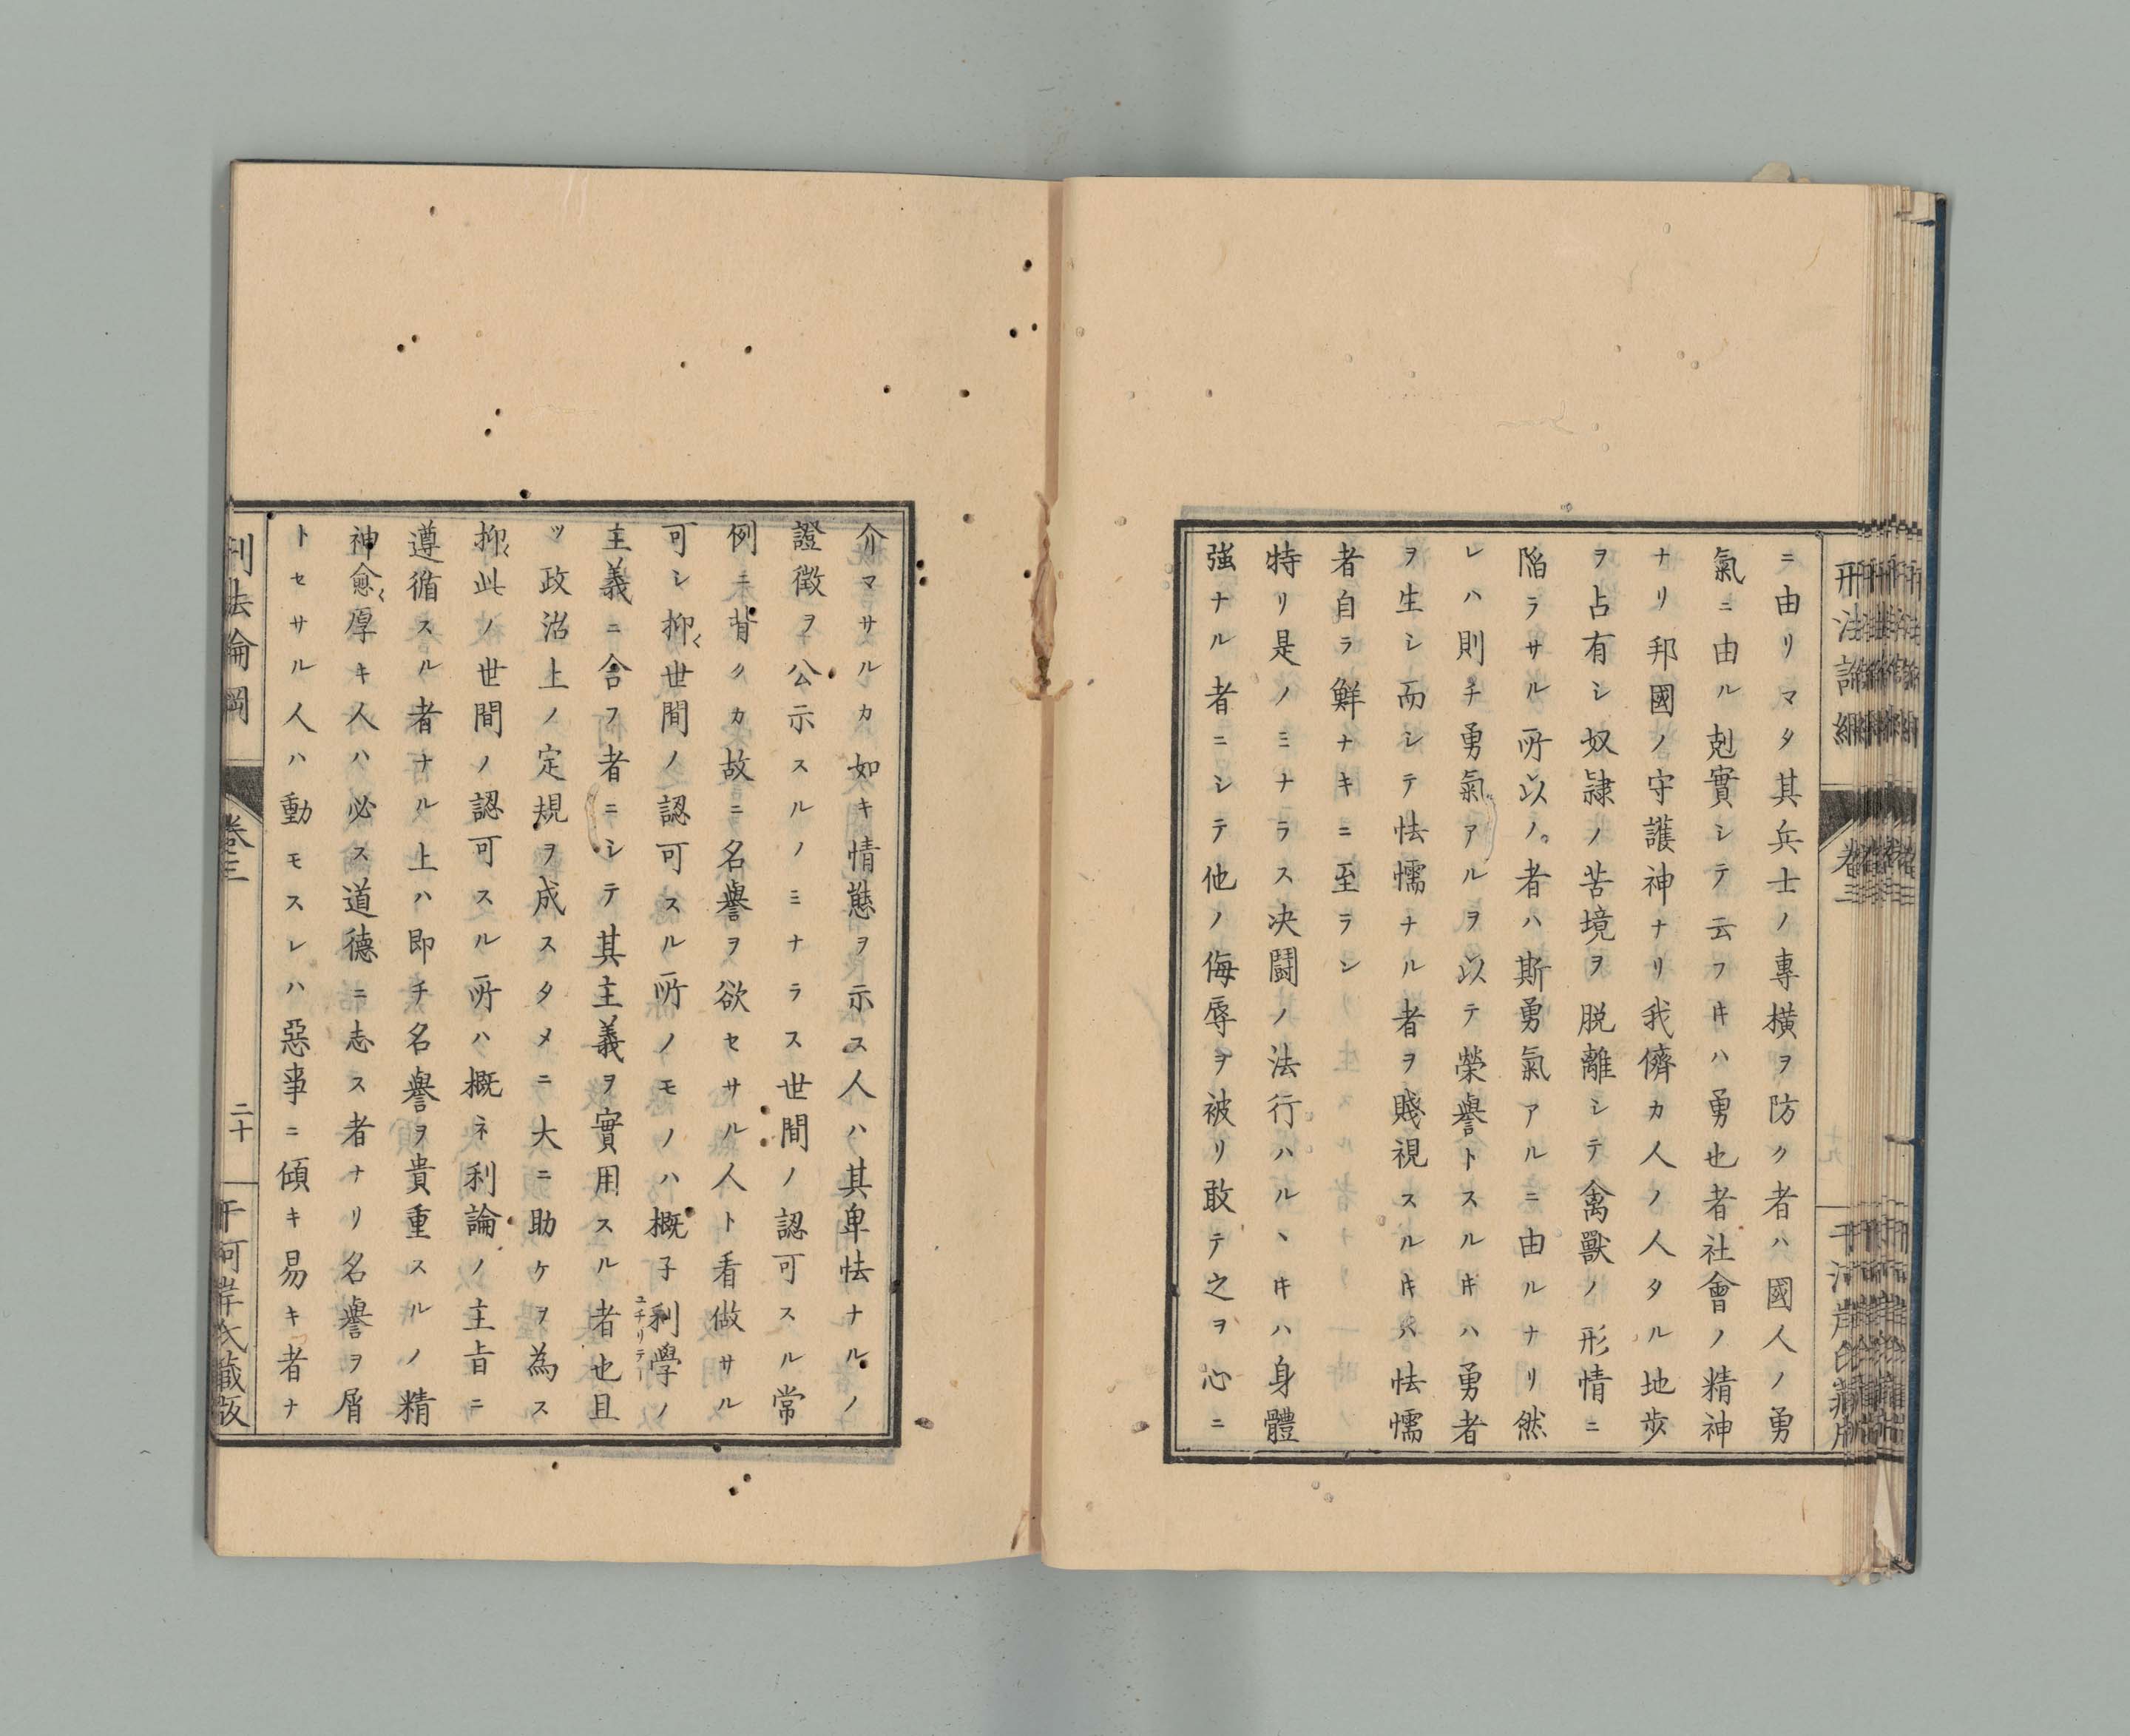 ニ由リマタ其兵士ノ專橫ヲ防ク者ハ國人ノ勇
氣ニ由ル剋實シテ云フキハ勇也者社會ノ精神
ナリ邦國ノ守護神ナリ我儕カ人ノ人タル地歩
ヲ占有シ奴隷ノ苦境ヲ脱離シテ禽獸ノ形情ニ
陷ラサル所以ノ者ハ斯勇氣アルニ由ルナリ然
レハ則チ勇氣アルヲ以テ榮譽トスルキハ勇者
ヲ生シ而シテ怯懦ナル者ヲ賤視スルキハ怯懦
者自ラ鮮ナキニ至ラン
特リ是ノミナラス决闘ノ法行ハルヽキハ身體
強ナル者ニシテ他ノ侮辱ヲ被リ敢テ之ヲ心ニ
介マサルカ如キ情態ヲ示ス人ハ其卑怯ナルノ
證徴ヲ公示スルノミナラス世間ノ認可スル常
例ニ背クカ故ニ名譽ヲ欲セサル人ト看做サル
可シ抑〻世間ノ認可スル所ノモノハ概子利學ノ
ユチリテー
主義ニ合フ者ニシテ其主義ヲ實用スル者也且
ツ政治上ノ定規ヲ成スタメニ大ニ助ケヲ為ス
抑〻此ノ世間ノ認可スル所ハ概ネ利論ノ主旨ニ
遵循スル者ナル上ハ即チ名譽ヲ貴重スルノ精
神愈〻厚キ人ハ必ス道德ニ志ス者ナリ名譽ヲ屑
トセサル人ハ動モスレハ惡事ニ傾キ易キ者ナ
刑法論綱
卷三
二十
干河岸氏藏版